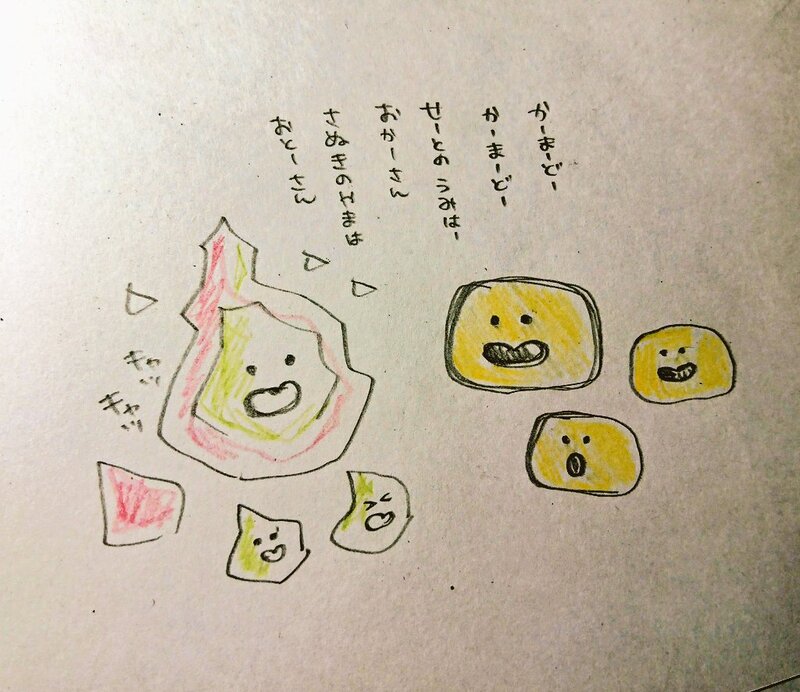 かーまーどー
かーまーどー
せーとの うみはー
おかーさん
さぬきのやまは
おとーさん
キャッ
キャッ